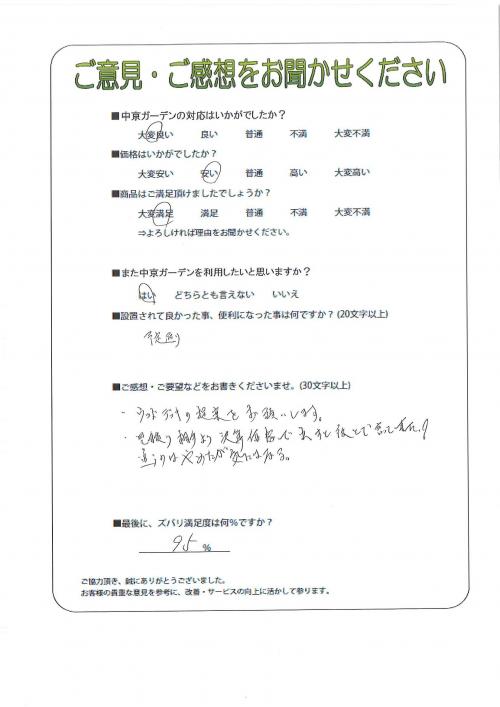 ご意見・ご感想をお聞かせください
■中京ガーデンの対応はいかがでしたか？
大変良い 良い 普通 不満 大変不満
■価格はいかがでしたか？
大変安い 安い 普通 高い 大変高い
■商品はご満足頂けましたでしょうか？
大変満足 満足 普通 不満 大変不満
⇒よろしければ理由をお聞かせください。
■また中京ガーデンを利用したいと思いますか？
はい どちらとも言えない いいえ
■設置されて良かった事、便利になった事は何ですか？(20文字以上)
予定通り
■ご感想・ご要望などをお書きくださいませ。(30文字以上)
・ウッドデッキの提案をお願いします。
・見積り
■最後に、ズバリ満足度は何％ですか？
95 %
ご協力頂き、誠にありがとうございました。
お客様の貴重な意見を参考に、改善・サービスの向上に活かして参ります。